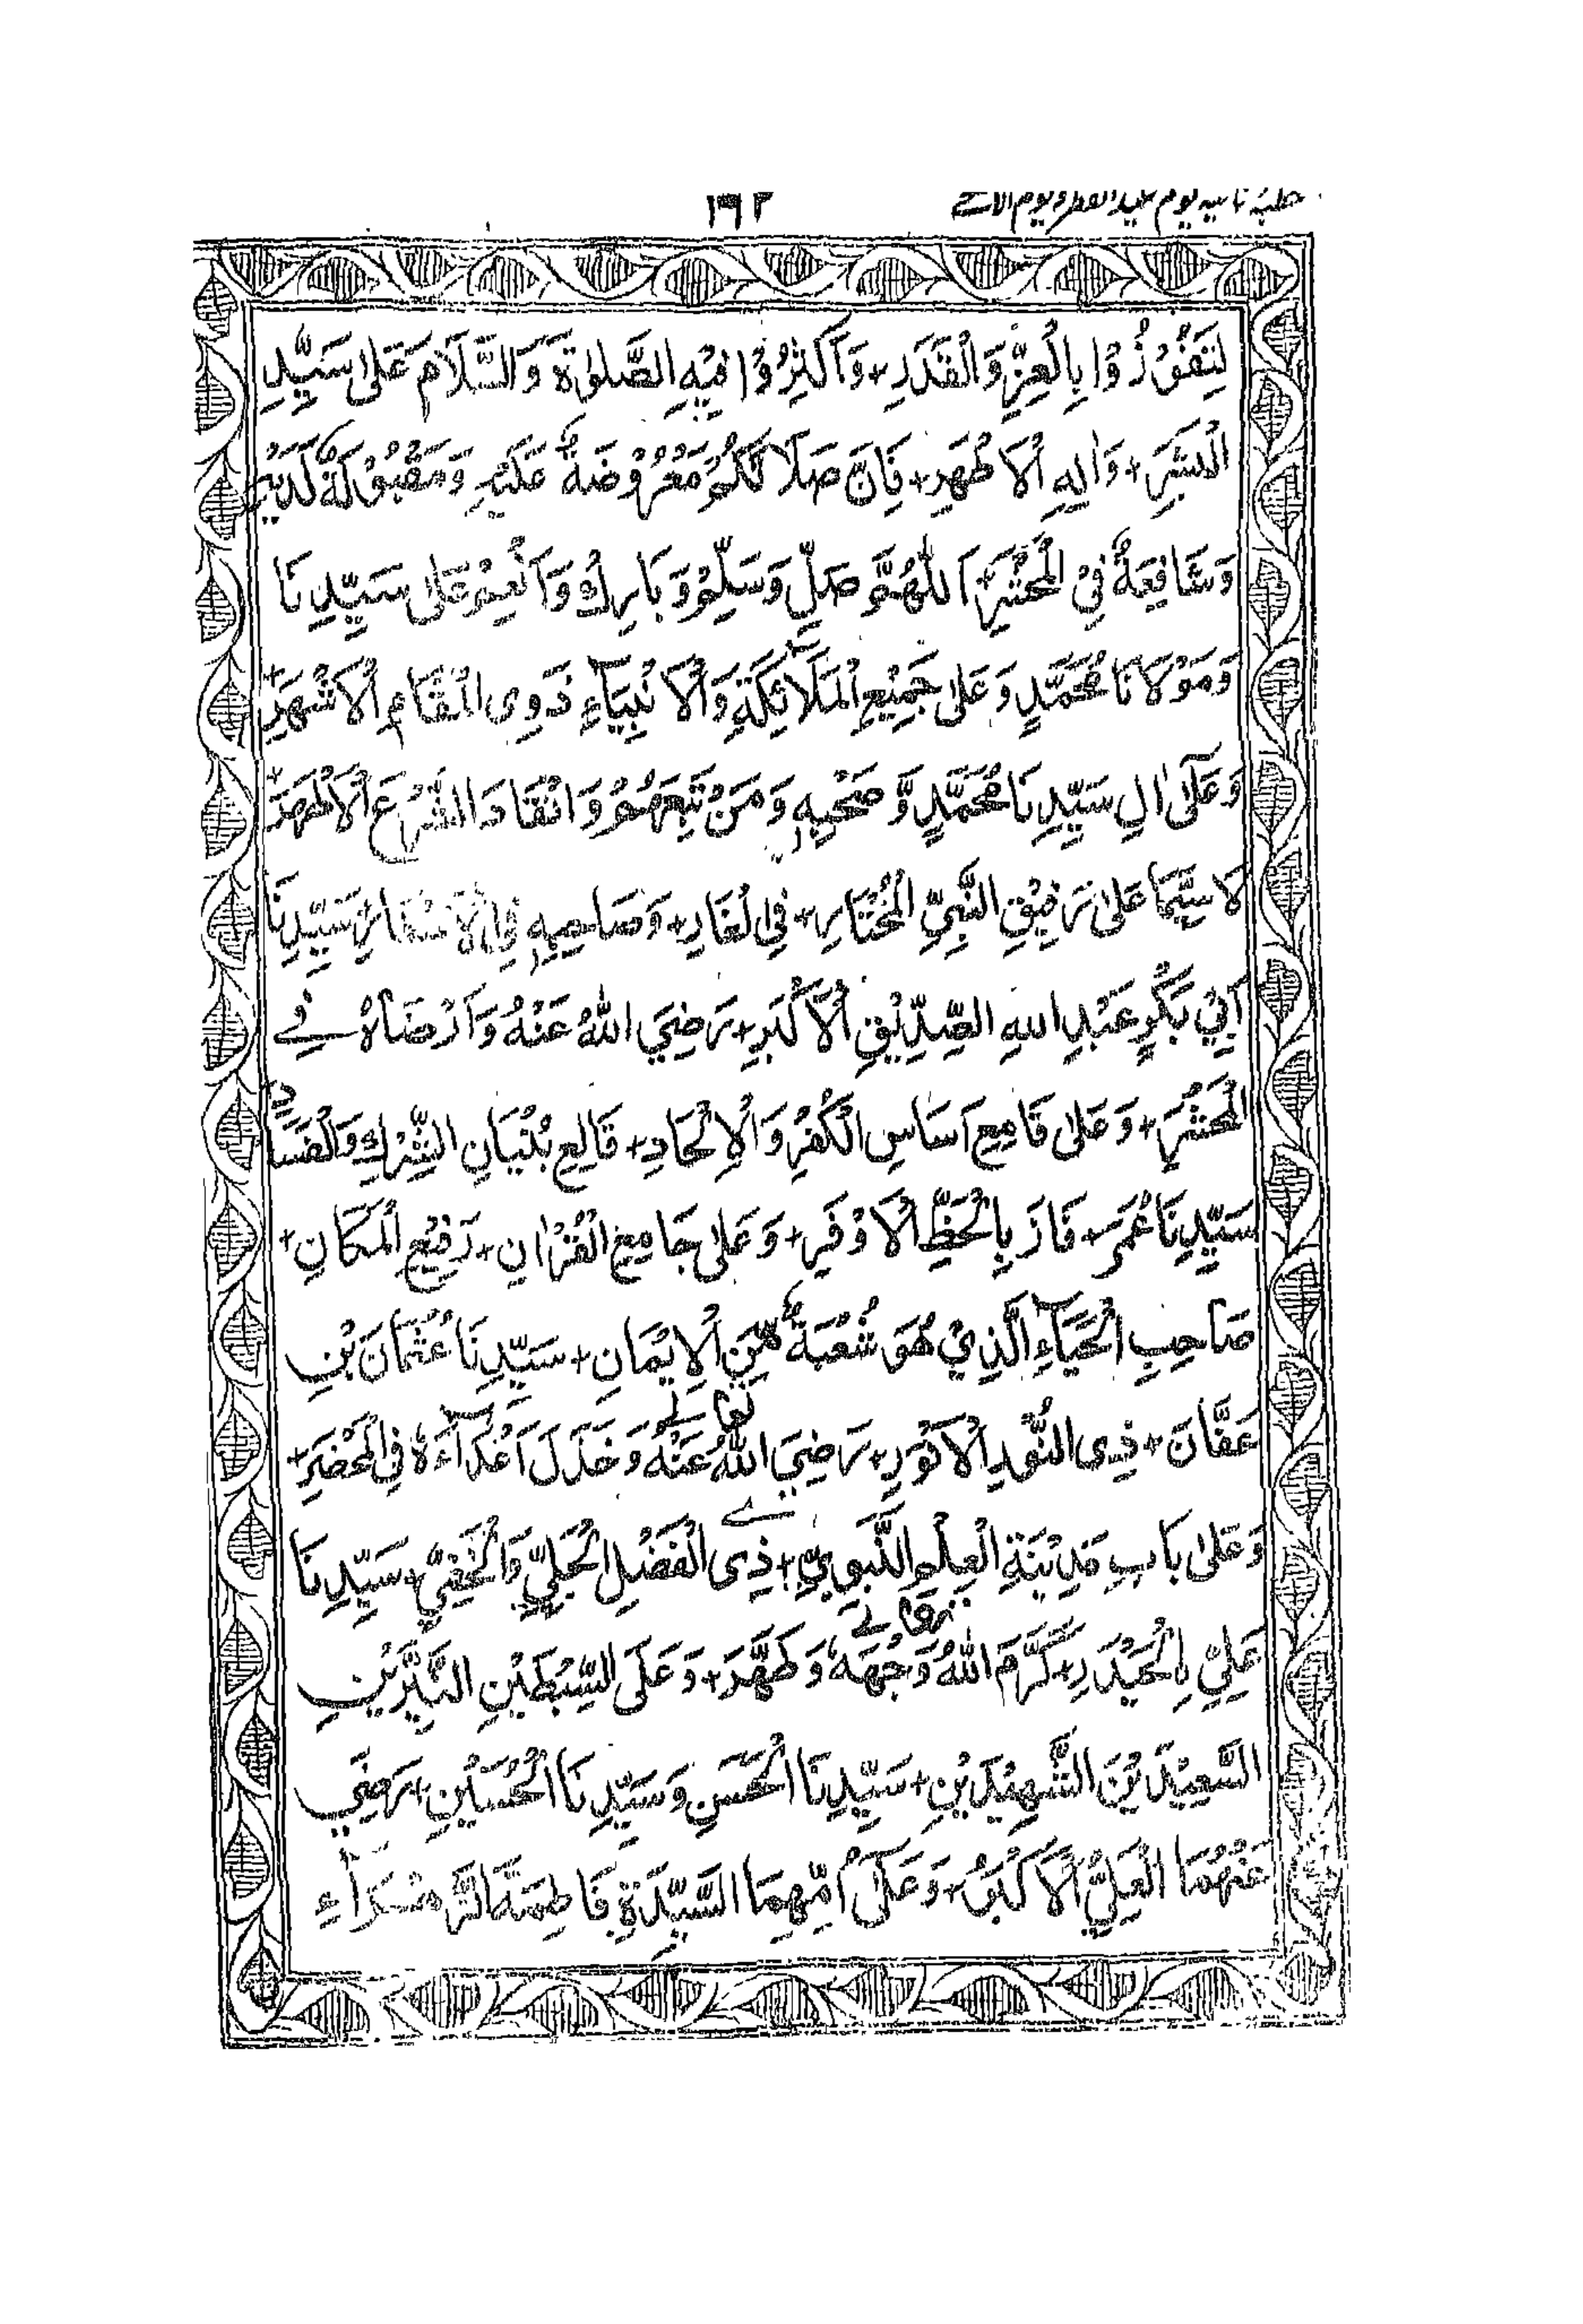 خطبۂ ثانیہ یوم عید الفطر و یوم الاضحے
۱۶۲
لِتَفُوْزُوْا بِالْعِزِّ وَالْقَدَرِ + وَاَكْثِرُوْا فِيْهِ الصَّلٰوةَ وَالسَّلَامَ عَلٰى سَيِّدِ
الْبَشَرِ + وَاٰلِهِ الْاَطْهَرِ + فَاِنَّ صَلَاتَكُمْ مَعْرُوْضَةٌ عَلَيْهِ وَمَقْبُوْلَةٌ لَدَيْهِ
وَشَافِعَةٌ فِيْ الْمَحْشَرِ + اَللّٰهُمَّ صَلِّ وَسَلِّمْ وَبَارِكْ وَاَنْعِمْ عَلٰى سَيِّدِنَا
وَمَوْلَانَا مُحَمَّدٍ وَعَلٰى جَمِيْعِ الْمَلَآئِكَةِ وَالْاَنْبِيَآءِ ذَوِى الْمَقَامِ الْاَشْهَرِ +
وَعَلٰٓى اٰلِ سَيِّدِنَا مُحَمَّدٍ وَّصَحْبِهٖ وَمَنْ تَبِعَهُمْ وَانْقَادَ الشَّرْعَ الْاَطْهَرَ +
لَا سِيَّمَا عَلٰى رَفِيْقِ النَّبِيِّ الْمُخْتَارِ + فِي الْغَارِ + وَصَاحِبِهٖ فِي الْاَسْفَارِ + سَيِّدِنَا
اَبِيْ بَكْرٍ عَبْدِ اللهِ الصِّدِّيْقِ الْاَكْبَرِ + رَضِيَ اللّٰهُ عَنْهُ وَاَرْضَاهُ فِے
الْمَحْشَرِ + وَعَلٰى قَامِعِ اَسَاسِ الْكُفْرِ وَالْاِلْحَادِ + قَالِعِ بُنْيَانِ الشِّرْكِ وَالْفَسَادِ +
سَيِّدِنَا عُمَرَ + فَازَ بِالْحَظِّ الْاَوْفَرِ + وَعَلٰى جَامِعِ الْقُرْاٰنِ + رَفِيْعِ الْمَكَانِ +
صَاحِبِ الْحَيَآءِ الَّذِيْ هُوَ شُعْبَةٌ مِّنَ الْاِيْمَانِ + سَيِّدِنَا عُثْمَانَ بْنِ
عَفَّانَ + ذِى النُّوْرِ الْاَنْوَرِ + رَضِيَ اللّٰهُ تعالے عَنْهُ وَخَذَلَ اَعْدَآءَهٗ فِي الْمَحْضَرِ +
وَعَلٰى بَابِ مَدِيْنَةِ الْعِلْمِ النَّبَوِيِّ + ذِى الْفَضْلِ الْجَلِيِّ وَالْخَفِيِّ + سَيِّدِنَا
عَلِيِّ ِالْحَيْدَرِ + كَرَّمَ اللّٰهُ تعالے وَجْهَهٗ وَطَهَّرَ + وَعَلَى السِّبْطَيْنِ النَّيِّرَيْنِ
السَّعِيْدَيْنِ الشَّهِيْدَيْنِ + سَيِّدِنَا الْحَسَنِ وَسَيِّدِنَا الْحُسَيْنِ + رَضِيَ
عَنْهُمَا الْعَلِيُّ الْاَكْبَرُ + وَعَلٰٓى اُمِّهِمَا السَّيِّدَةِ فَاطِمَةَ الزَّهْرَاءِ